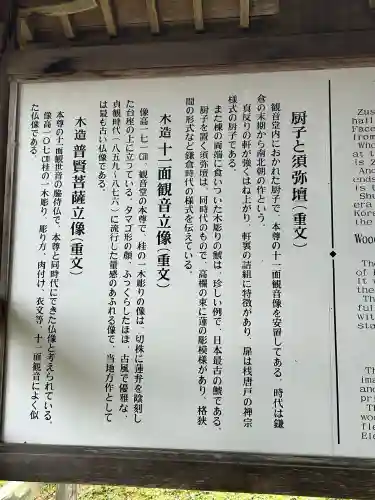 厨子と須弥壇(重文)
観音堂内におかれた厨子で、本尊の十一面観音像を安置してある。時代は鎌
倉の末期から南北朝の作という。
貞反りの軒が強くはね上がり、軒裏の詰組に特徴があり、扉は桟唐戸の禅宗
様式の厨子である。
また棟の両端に食いついた木彫りの鯱は、珍しい例で、日本最古の鯱である。
厨子を置く須弥壇は、同時代のもので、高欄の束に蓮の彫模様があり、格狭
間の形式など鎌倉時代の様式を伝えている。
木造 十一面観音立像(重文)
像高一七一㎝ 観音堂の本尊で、桂の一木彫りの像は、切株に蓮弁を陰刻し
た台座の上に立っている。タマゴ形の顔、ふっくらしたほほ、古風で優雅な、
貞観時代(八五九〜八七六)に流行した量感のあふれる像で、当地方作として
は最も古い仏像である。
木造 普賢菩薩立像(重文)
本尊の十一面観世音の脇侍仏で、本尊と同時代にできた仏像と考えられている。
像高一〇七㎝桂の一木彫り、彫り方、肉付け、衣文等、十一面観音によく似
た仏像である。
Zus
hall
Face
from
Who
at t
is Z
And
ends
is t
Shu
era
Kore
the
Wood
The
of
it
the
the
full
Wit
stat
The
and
pri
The
wood
fle
Ele